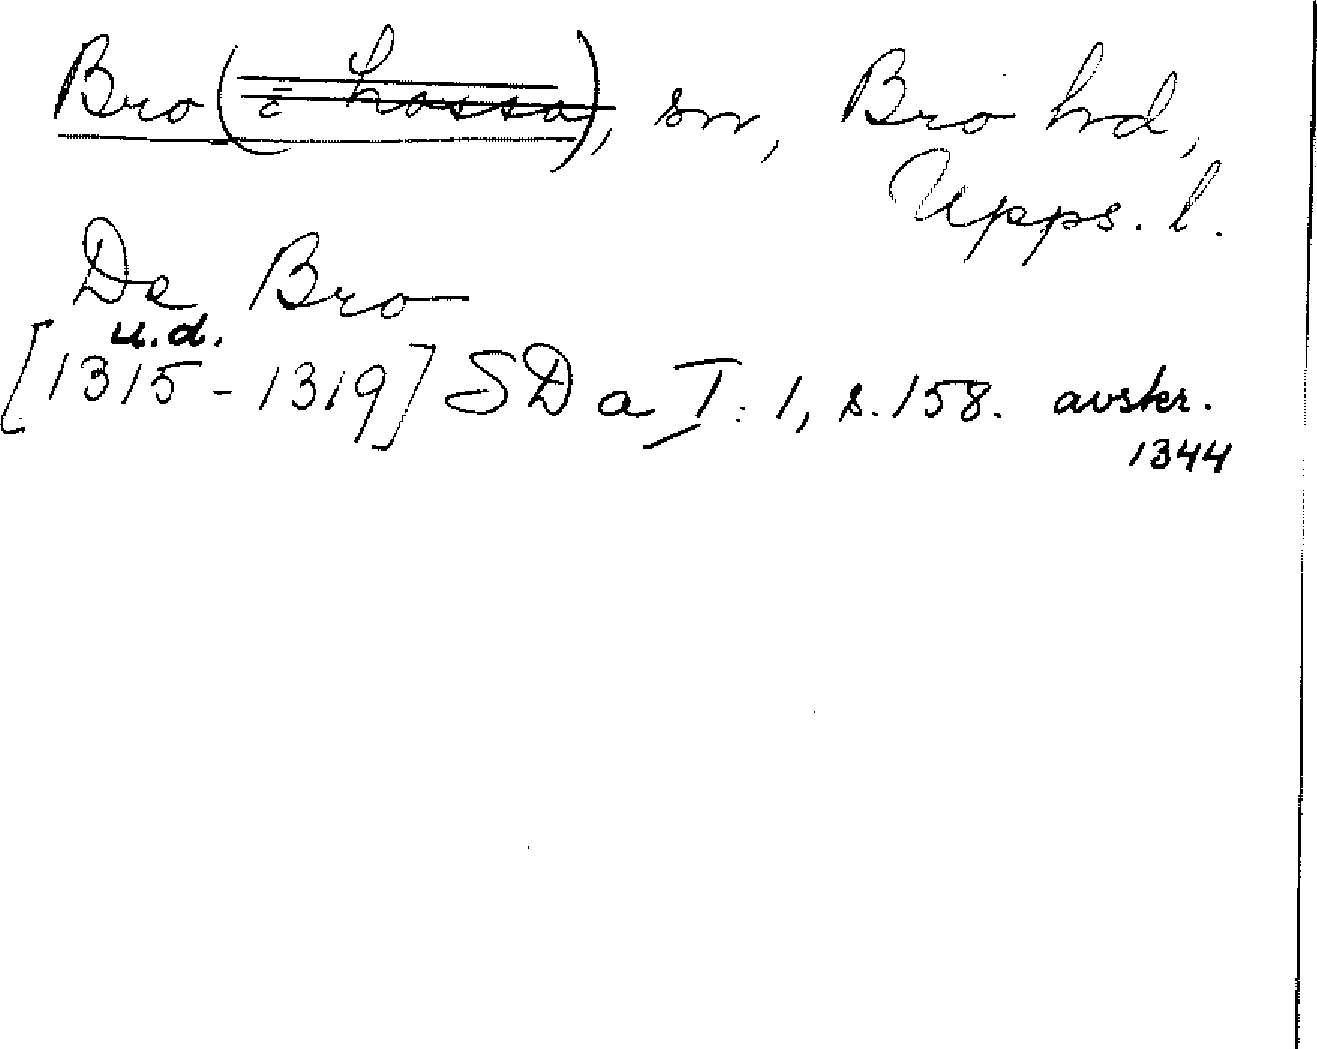 Bro (i Lossa), sn, Bro hd,
Upps. l.
De Bro
u.d.
[1315-1319] SD a I:1, s.158. avskr.
1344